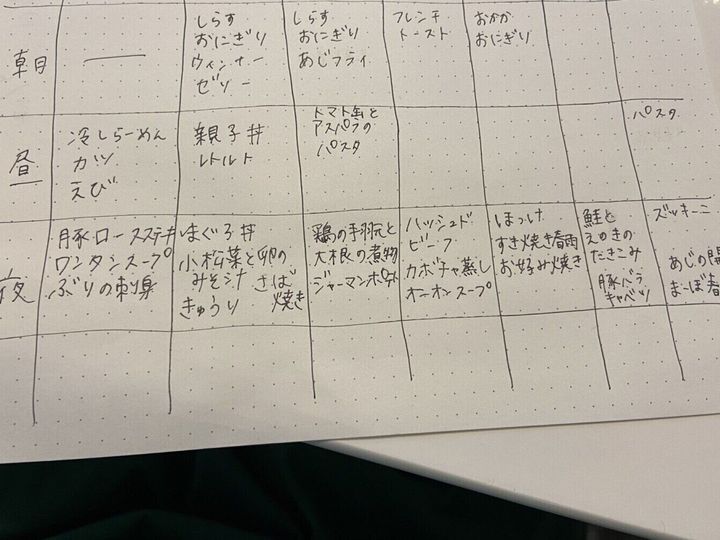 朝
しらす
おにぎり
ウィンナー
ゼリー
しらす
おにぎり
あじフライ
フレンチ
トースト
おかか
おにぎり
昼
冷しらーめん
カツ
えび
親子丼
レトルト
トマト缶と
アスパラの
パスタ
パスタ
夜
豚ロースステーキ
ワンタンスープ
ぶりの刺身
まぐろ丼
小松菜と卵の
みそ汁 さば
きゅうり 焼き
鶏の手羽元と
大根の煮物
ジャーマンポテト
ハッシュド
ビーフ
カボチャ蒸し
オニオンスープ
ほっけ
すき焼き春雨
お好み焼き
鮭と
えのきの
たきこみ
豚バラ
キャベツ
ズッキーニ
あじの開
まーぼ春